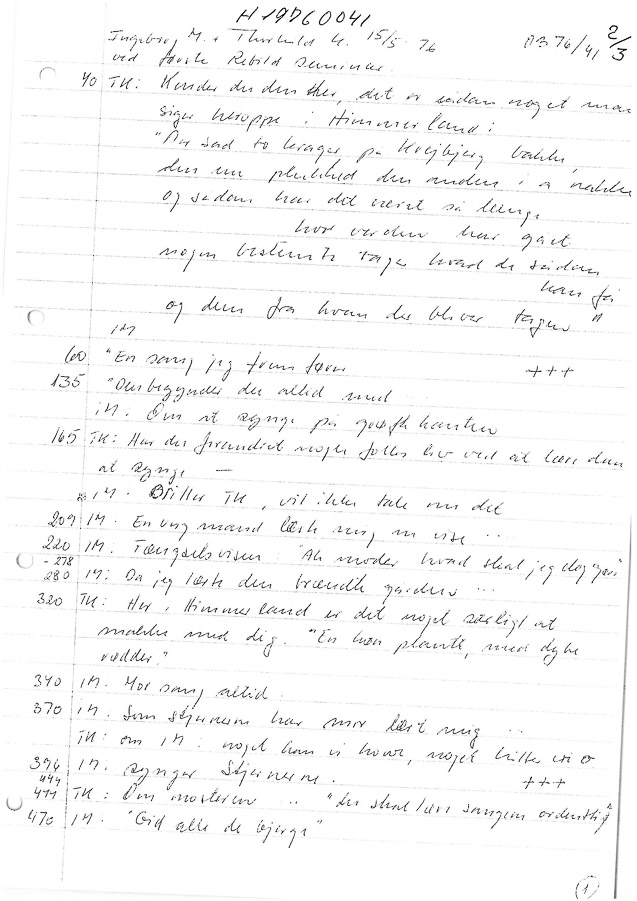 H 19760041
Ingeborg M. + Thorkild K. 15/5 76 DB 76/41 2/3
ved første Rebild seminar.
40 TK: Kender du den her, det er sådan noget man
siger heroppe i Himmerland:
"Der sad to krager på bakke,
den ene den anden i a nakke
og sådan har det været så længe
hvor verden har gået
nogen bestemte tager hvad de sådan
kan få
og dem fra hvem der bliver tagen"
IM
60 "En sang jeg frem føre +++
135 "Den begynder du altid med
IM. Om at synge på grøftkanten
165 TK: Har du forandret noget folks liv ved at lære dem
at synge —
IM. Driller TK, vil ikke tale om det
209 IM. En ung mand lærte mig en vise ...
220 IM. Fængselsvisen: "Ak moder hvad skal jeg dog gøre"
- 278
280 IM: Da jeg lærte den brændte gården ...
320 TK: Her i Himmerland er det noget særligt at
møde med dig. "En plante, med dybe
rødder."
340 IM. Mor sang altid.
370 IM. Som stjernerne har mor lært mig ...
TK: om IM: noget kan vi huske, noget
394 IM. synger Stjernerne. +++
444
444 TK: Om mosteren ... "du skal lære sangen ordentlig"
470 IM. "Gid alle de bjerge"
1